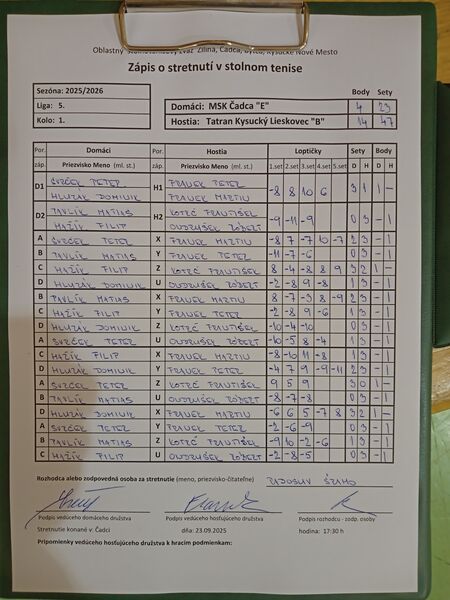 Oblastný stolnotenisový zväz Žilina, Čadca, Bytča, Kysucké Nové Mesto
Zápis o stretnutí v stolnom tenise
Sezóna: 2025/2026
Liga: 5.
Kolo: 1.
Body Sety
Domáci: MSK Čadca "E" 4 23
Hostia: Tatran Kysucký Lieskovec "B" 14 47
Por. Domáci Por. Hostia Loptičky Sety Body
záp. Priezvisko Meno (ml. st.) záp. Priezvisko Meno (ml. st.) 1.set 2.set 3.set 4.set 5.set D H D H
D1 SVRČEK PETER H1 PETER -8 8 10 6 3 1 1 -
HLUZÁK DOMINIK MARTIN
D2 PAVLÍK MATIAS H2 FRANTIŠEK -9 -11 -9 0 3 - 1
HAŽÍK FILIP RÓBERT
A SVRČEK PETER X MARTIN -8 7 -7 10 -7 2 3 - 1
B PAVLÍK MATIAS Y PETER -11 -7 -6 0 3 - 1
C HAŽÍK FILIP Z FRANTIŠEK 8 -4 -8 8 9 3 2 1 -
D HLUZÁK DOMINIK U RÓBERT -2 -8 9 -8 1 3 - 1
B PAVLÍK MATIAS X MARTIN 8 -7 -3 8 -9 2 3 - 1
C HAŽÍK FILIP Y PETER -2 -8 9 -6 1 3 - 1
D HLUZÁK DOMINIK Z FRANTIŠEK -10 -4 -10 0 3 - 1
A SVRČEK PETER U RÓBERT -10 -5 8 -4 1 3 - 1
C HAŽÍK FILIP X MARTIN -8 -10 11 -8 1 3 - 1
D HLUZÁK DOMINIK Y PETER -4 7 9 -9 -11 2 3 - 1
A SVRČEK PETER Z FRANTIŠEK 9 5 9 3 0 1 -
B PAVLÍK MATIAS U RÓBERT -8 -7 -8 0 3 - 1
D HLUZÁK DOMINIK X MARTIN -6 6 5 -7 8 3 2 1 -
A SVRČEK PETER Y PETER -2 -6 -9 0 3 - 1
B PAVLÍK MATIAS Z FRANTIŠEK -9 10 -2 -6 1 3 - 1
C HAŽÍK FILIP U RÓBERT -2 -8 -5 0 3 - 1
Rozhodca alebo zodpovedná osoba za stretnutie (meno, priezvisko-čitateľne) RADOSLAV
Podpis vedúceho domáceho družstva Podpis vedúceho hosťujúceho družstva Podpis rozhodcu - zodp. osoby
Stretnutie konané v: Čadci dňa: 23.09.2025 hodina: 17:30 h
Pripomienky vedúceho hosťujúceho družstva k hracím podmienkam: